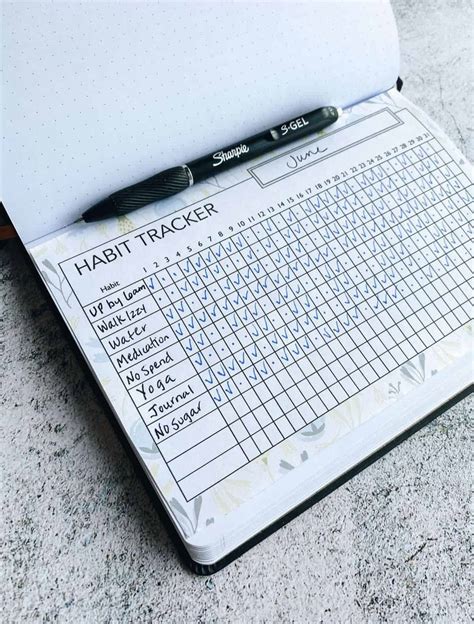 Sharpie S-GEL
June
HABIT TRACKER
Habit 1 2 3 4 5 6 7 8 9 10 11 12 13 14 15 16 17 18 19 20 21 22 23 24 25 26 27 28 29 30 31
Up by 6am
Walk Izzy
Water
Medication
No Spend
Yoga
Journal
No Sugar